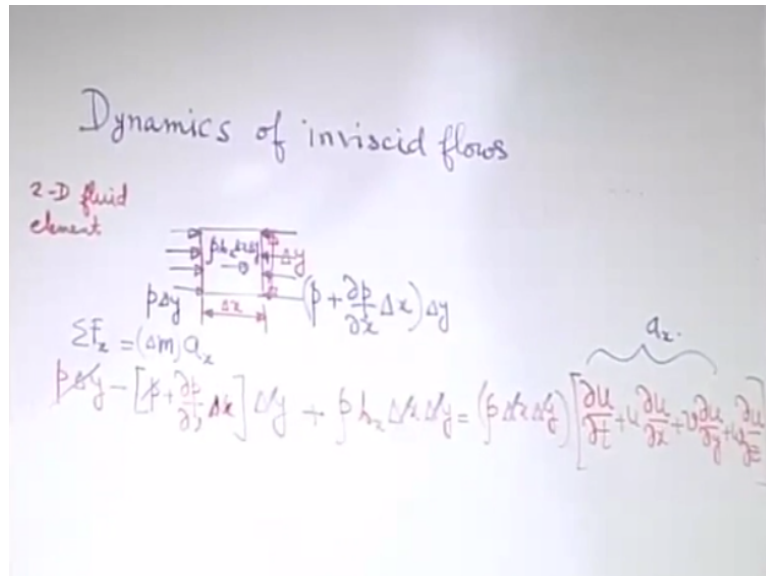 Dynamics of inviscid flows
2-D fluid
element
ρb_x ΔxΔy
Δy
pΔy
Δx
(p + ∂p/∂x Δx) Δy
a_x.
ΣF_x = (Δm) a_x
pΔy - [p + ∂p/∂x Δx] Δy + ρb_x ΔxΔy = (ρΔxΔy) [∂u/∂t + u ∂u/∂x + v ∂u/∂y + w ∂u/∂z]